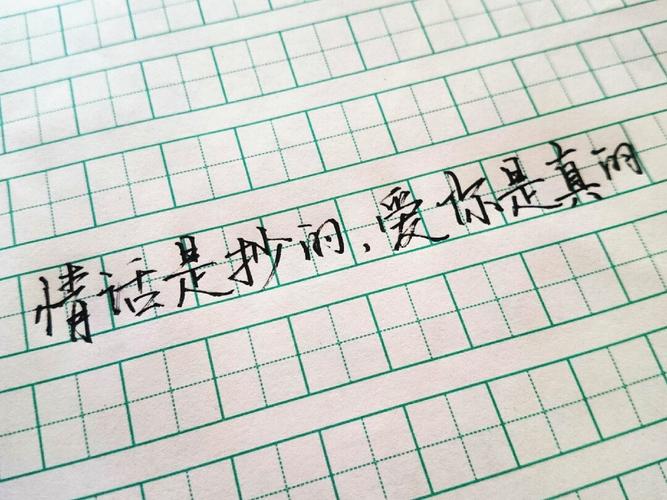 情话是抄的,爱你是真的